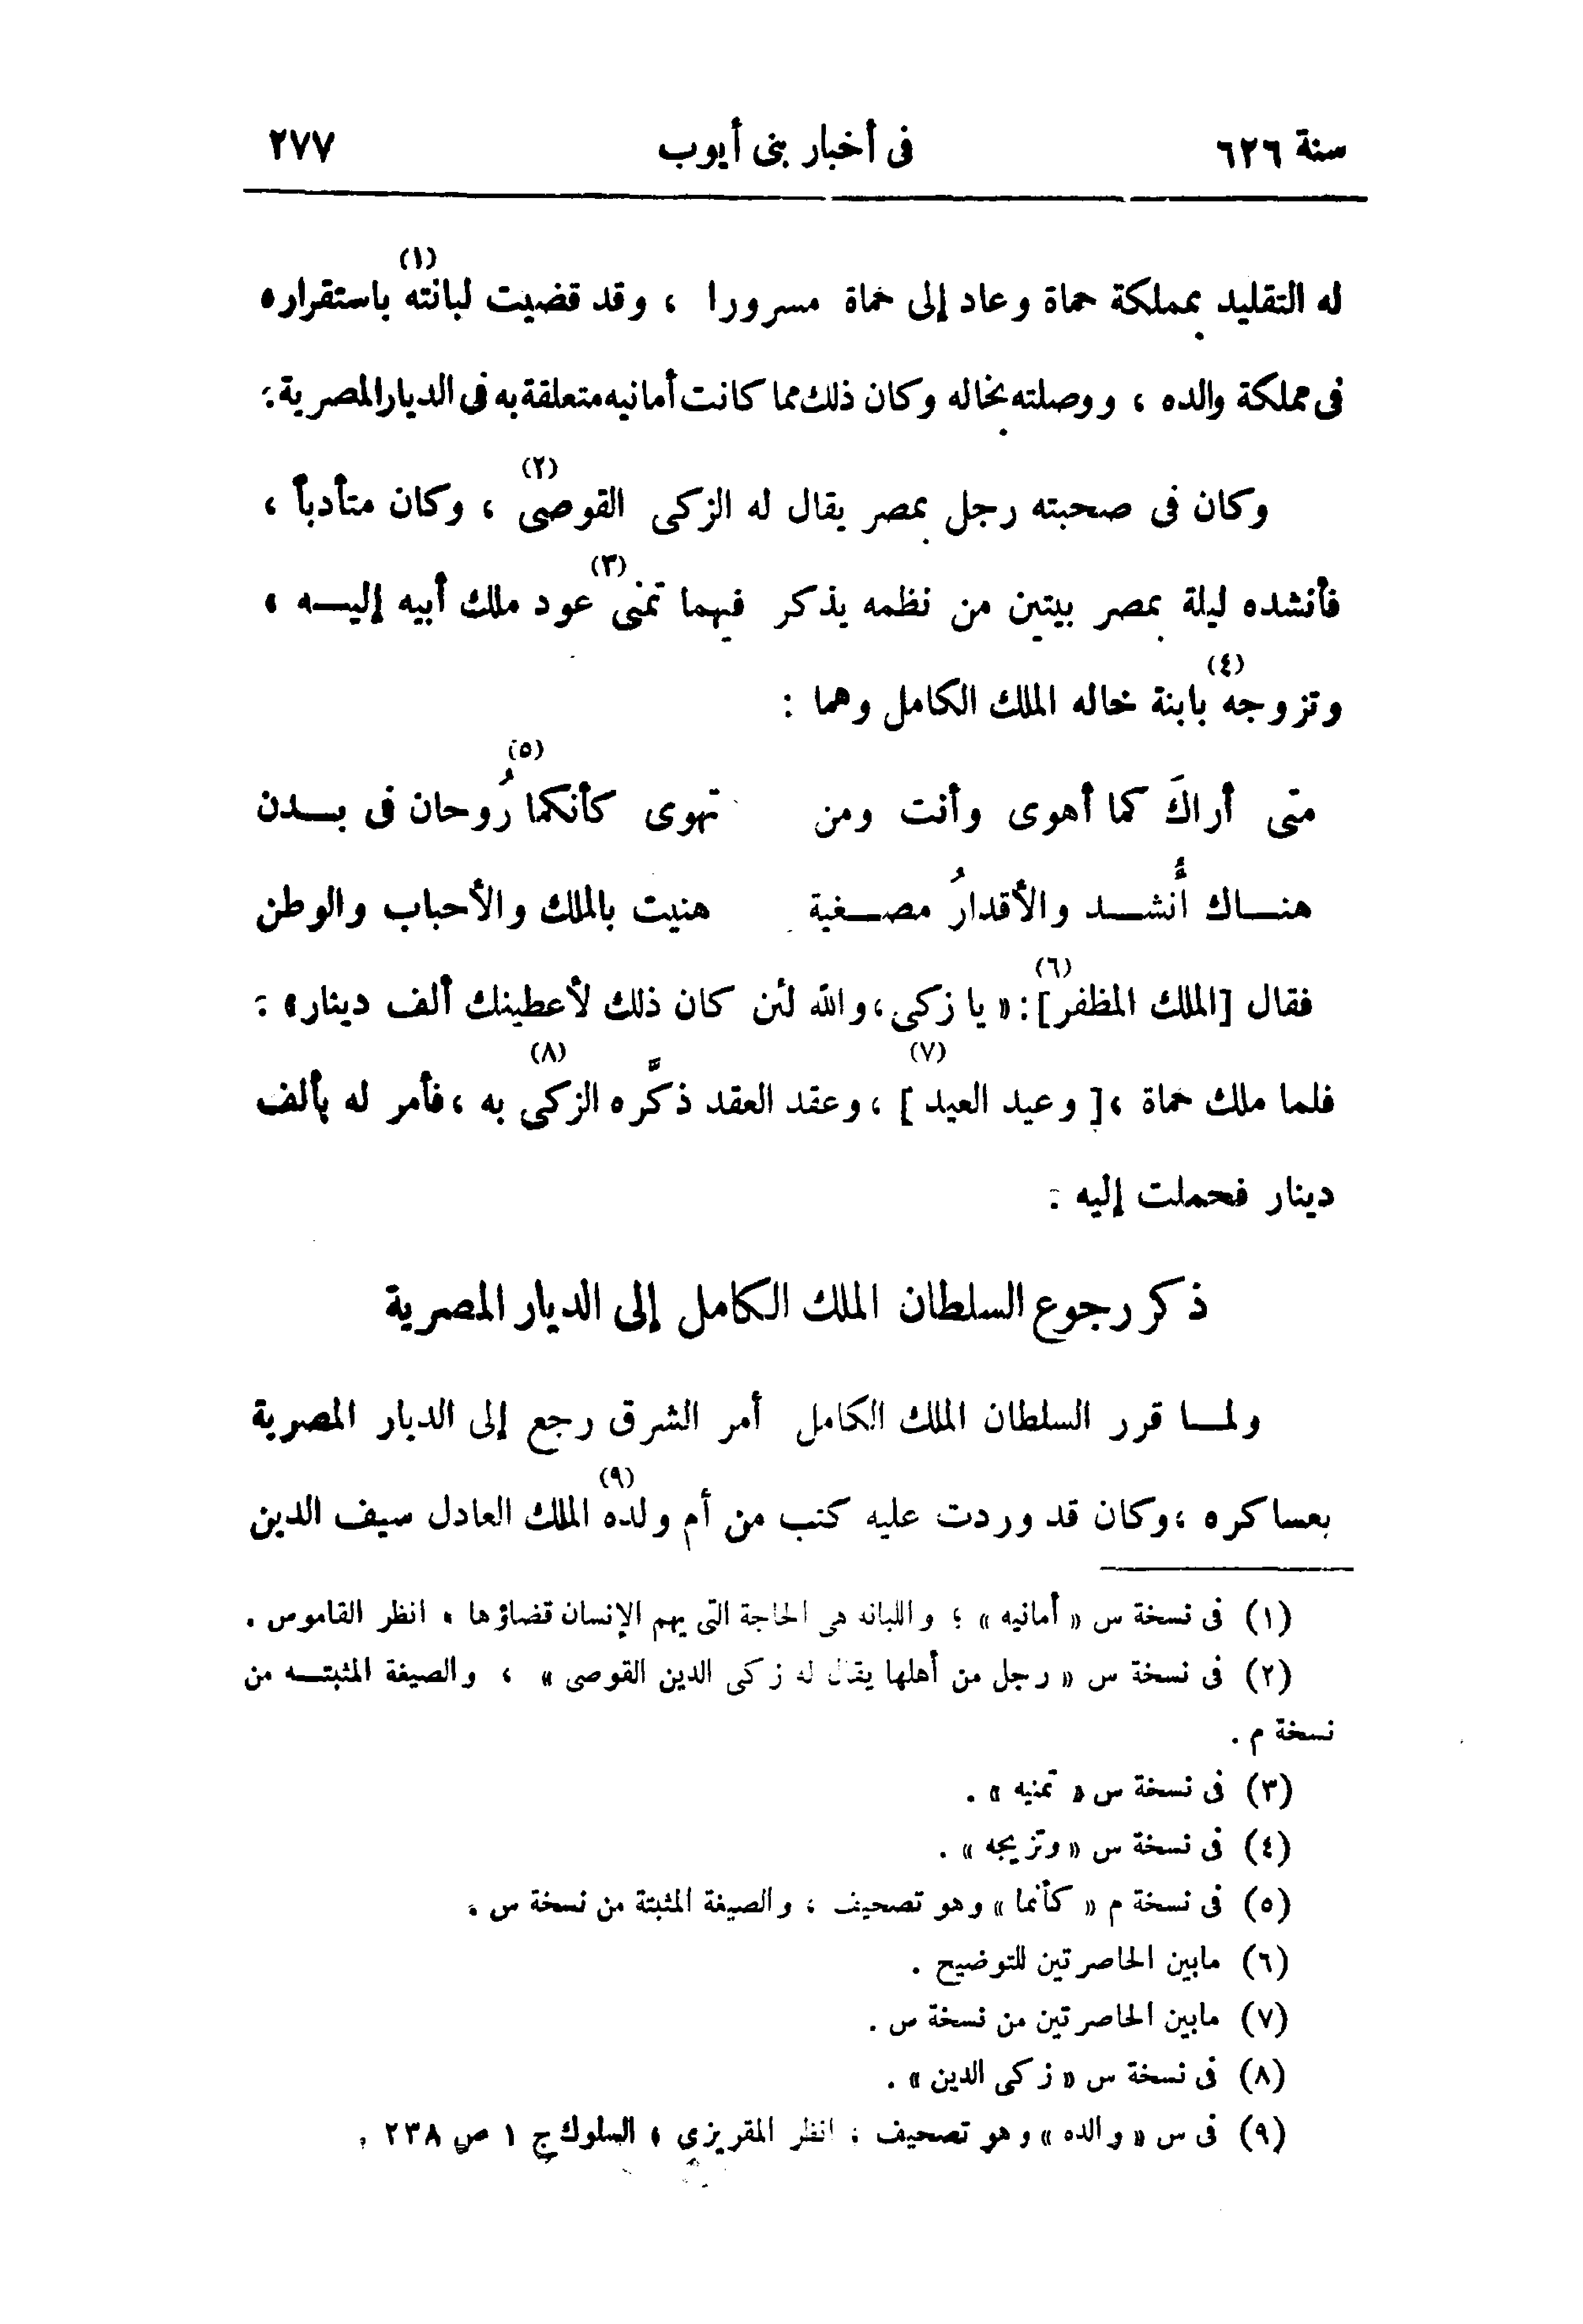 سنة ٦٢٦ فى أخبار بنى أيوب ٢٧٧
له التقليد بمملكة حماة وعاد إلى حماة مسرورا ، وقد قضيت لبانته (١) باستقراره
فى مملكة والده ، ووصلته بخاله وكان ذلك مما كانت أمانيه متعلقة به فى الديار المصرية .
وكان فى صحبته رجل بمصر يقال له الزكى القوصى (٢) ، وكان متأدباً ،
فأنشده ليلة بمصر بيتين من نظمه يذكر فيهما تمنى (٣) عود ملك أبيه إليـــه ،
وتزوجه (٤) بابنة خاله الملك الكامل وهما :
متى أراكَ كما أهوى وأنت ومن تهوى كأنكما (٥) رُوحان فى بـــدن
هنـــاك أُنشـــد والأقدارُ مصـــغية هنيت بالملك والأحباب والوطن
فقال [الملك المظفر] (٦) : « يا زكى ، والله لئن كان ذلك لأعطينك ألف دينار » .
فلما ملك حماة ، [ وعيد العيد ] (٧) ، وعقد العقد ذكَّره الزكى (٨) به ، فأمر له بألف
دينار فحملت إليه .
ذكر رجوع السلطان الملك الكامل إلى الديار المصرية
ولمـــا قرر السلطان الملك الكامل أمر الشرق رجع إلى الديار المصرية
بعساكره ، وكان قد وردت عليه كتب من أم ولده (٩) الملك العادل سيف الدين
(١) فى نسخة س « أمانيه » ؛ واللبانه هى الحاجة التى يهم الإنسان قضاؤها ، انظر القاموس .
(٢) فى نسخة س « رجل من أهلها يقال له زكى الدين القوصى » ، والصيغة المثبتـــه من
نسخة م .
(٣) فى نسخة س « تمنيه » .
(٤) فى نسخة س « وتزيجه » .
(٥) فى نسخة م « كأنما » وهو تصحيف ، والصيغة المثبتة من نسخة س .
(٦) مابين الحاصرتين للتوضيح .
(٧) مابين الحاصرتين من نسخة س .
(٨) فى نسخة س « زكى الدين » .
(٩) فى س « والده » وهو تصحيف ، انظر المقريزي ، السلوك ج ١ ص ٢٣٨ .